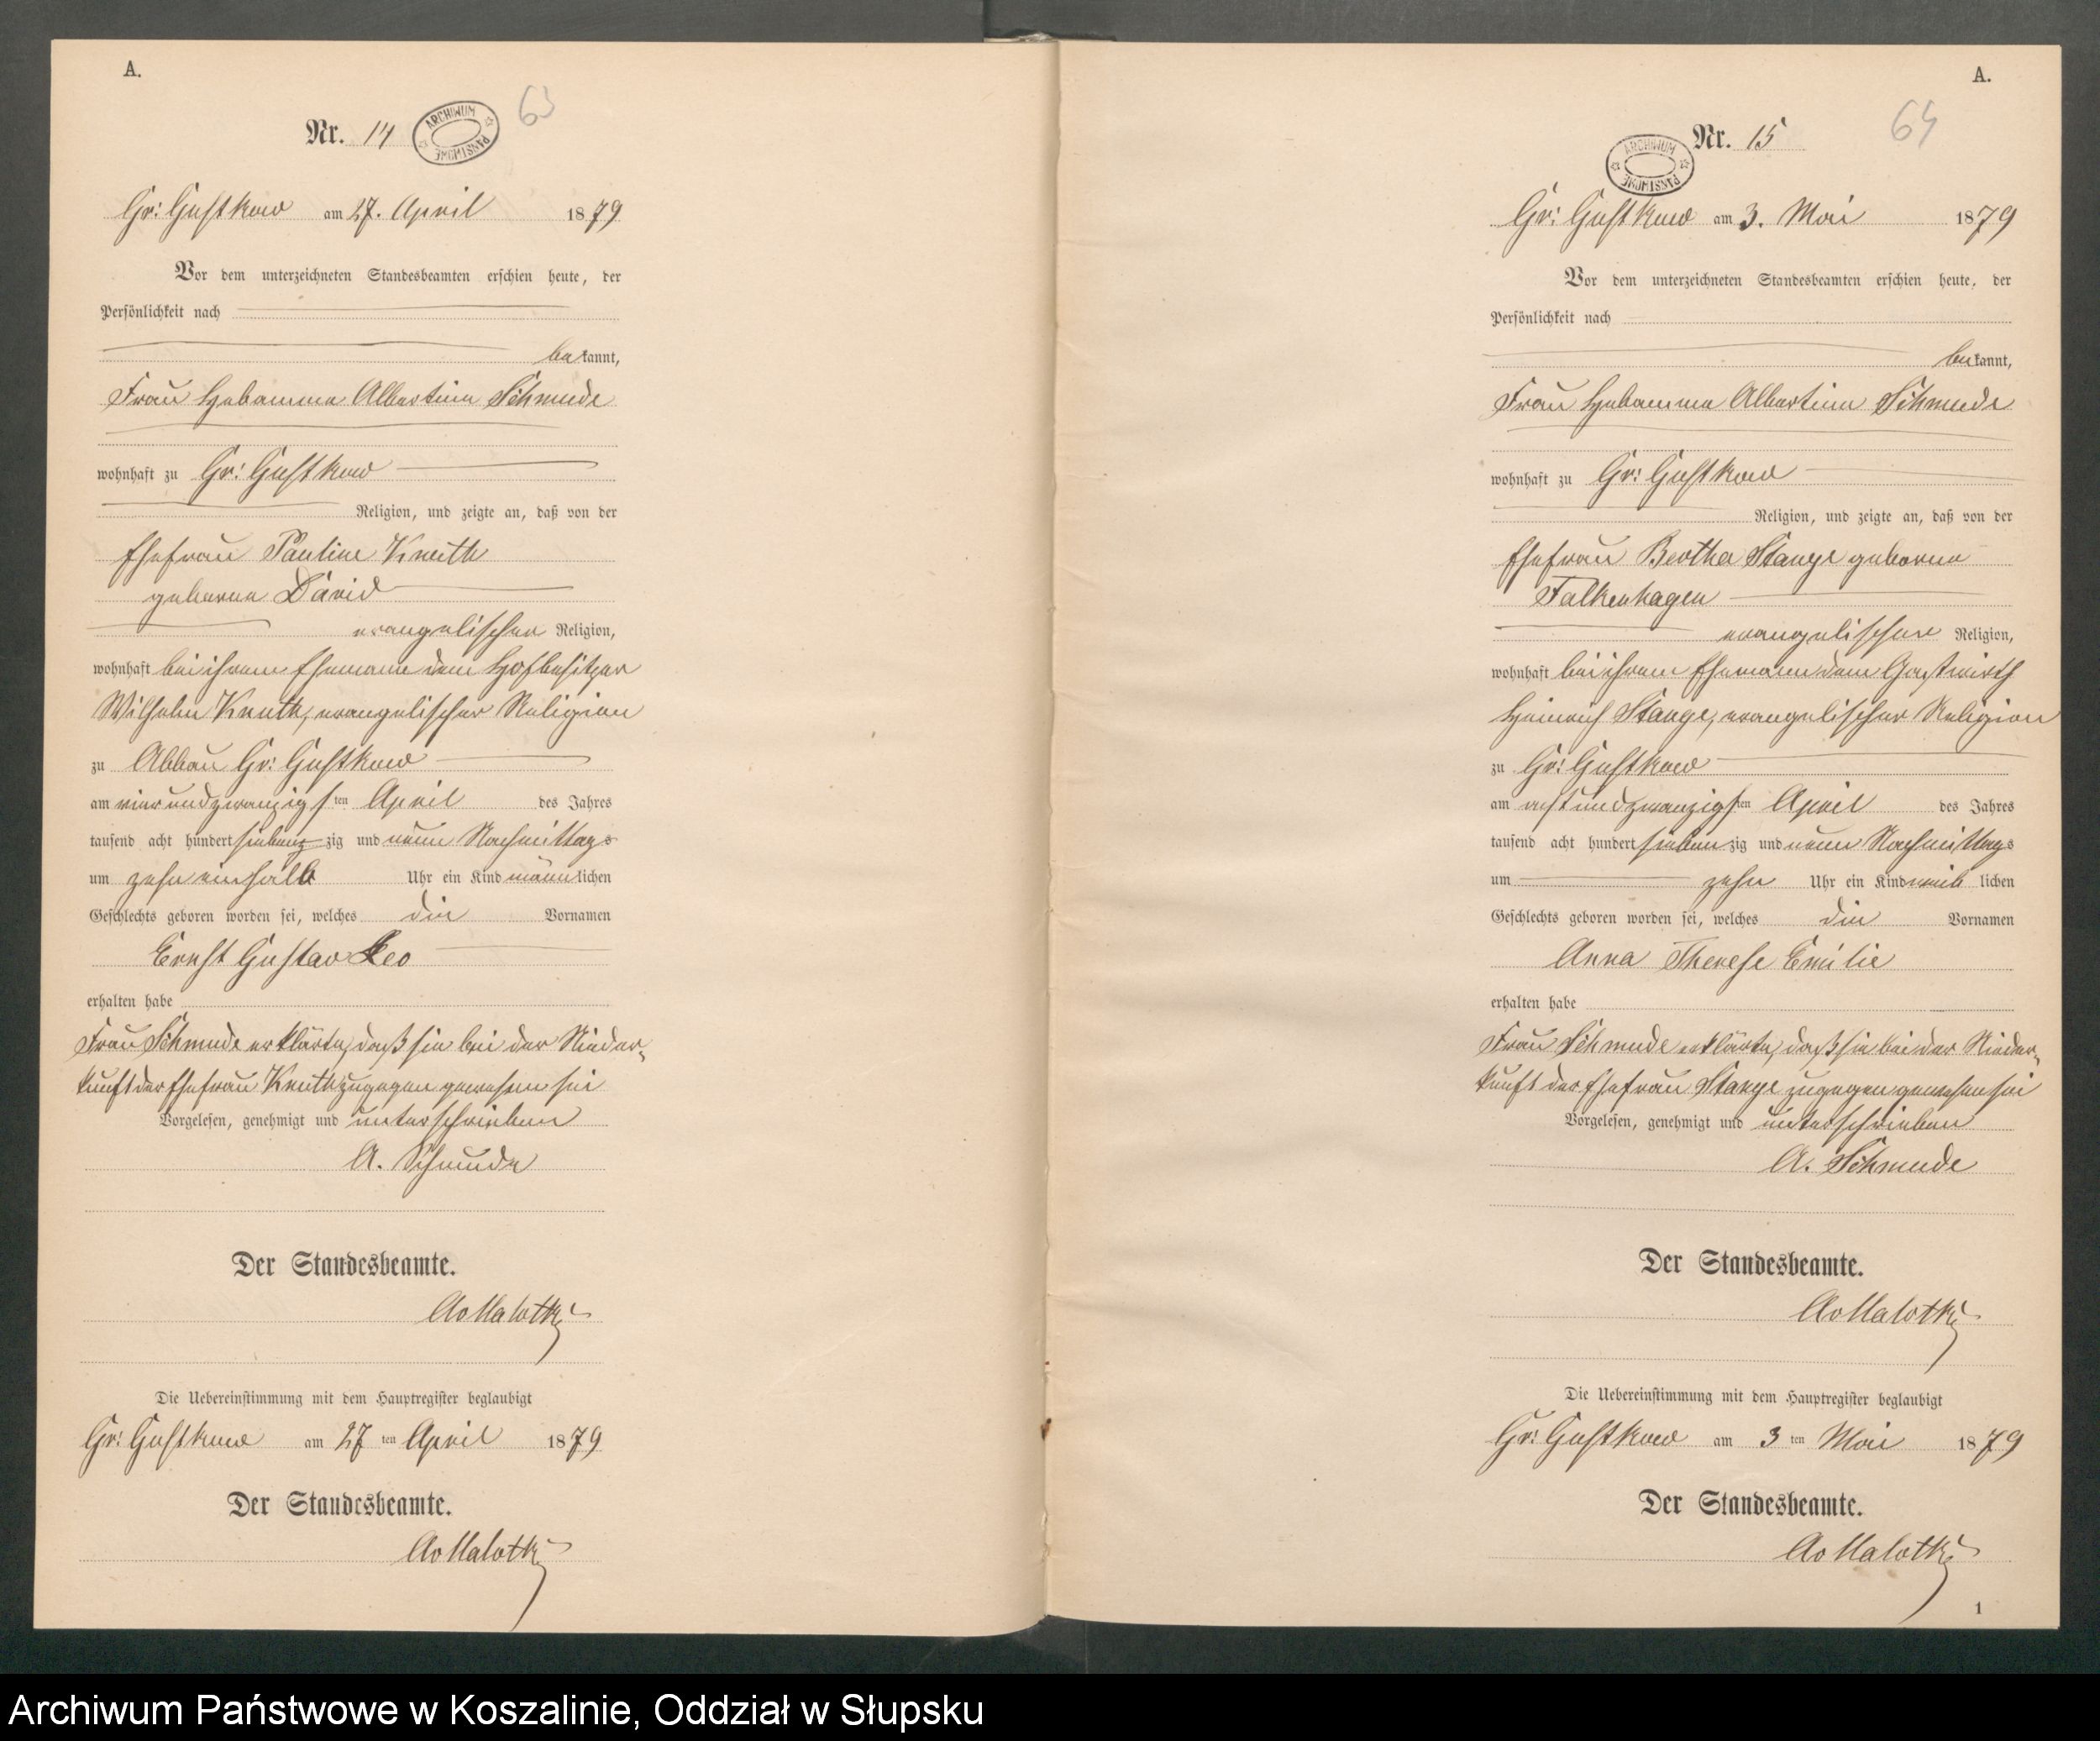 A.
Nr. 14
ARCHIWUM PAŃSTWOWE
63
Gr: Gustkow am 27. April 1879
Vor dem unterzeichneten Standesbeamten erschien heute, der
Persönlichkeit nach
bekannt,
Frau Hebamme Albertine Schmude
wohnhaft zu Gr: Gustkow
Religion, und zeigte an, daß von der
Ehefrau Pauline Knuth
geborne David
evangelischer Religion,
wohnhaft bei ihrem Ehemann dem Hofbesitzer
Wilhelm Knuth, evangelischer Religion
zu Abbau Gr: Gustkow
am vierundzwanzigsten April des Jahres
tausend acht hundert siebenzig und neun Nachmittags
um zehn einhalb Uhr ein Kind männlichen
Geschlechts geboren worden sei, welches die Vornamen
Ernst Gustav Leo
erhalten habe
Frau Schmude erklärte, daß sie bei der Nieder-
kunft der Ehefrau Knuth zugegen gewesen sei
Vorgelesen, genehmigt und unterschrieben
A. Schmude
Der Standesbeamte.
AvMalotki
Die Uebereinstimmung mit dem Hauptregister beglaubigt
Gr: Gustkow am 27ten April 1879
Der Standesbeamte.
AvMalotki
A.
Nr. 15
ARCHIWUM PAŃSTWOWE
64
Gr: Gustkow am 3. Mai 1879
Vor dem unterzeichneten Standesbeamten erschien heute, der
Persönlichkeit nach
bekannt,
Frau Hebamme Albertine Schmude
wohnhaft zu Gr: Gustkow
Religion, und zeigte an, daß von der
Ehefrau Bertha Stange geborne
Falkenhagen
evangelischer Religion,
wohnhaft bei ihrem Ehemann dem Gastwirth
Heinrich Stange, evangelischer Religion
zu Gr: Gustkow
am achtundzwanzigsten April des Jahres
tausend acht hundert siebenzig und neun Nachmittags
um zehn Uhr ein Kind weiblichen
Geschlechts geboren worden sei, welches die Vornamen
Anna Therese Emilie
erhalten habe
Frau Schmude erklärte, daß sie bei der Nieder-
kunft der Ehefrau Stange zugegen gewesen sei
Vorgelesen, genehmigt und unterschrieben
A. Schmude
Der Standesbeamte.
AvMalotki
Die Uebereinstimmung mit dem Hauptregister beglaubigt
Gr: Gustkow am 3ten Mai 1879
Der Standesbeamte.
AvMalotki
1
Archiwum Państwowe w Koszalinie, Oddział w Słupsku